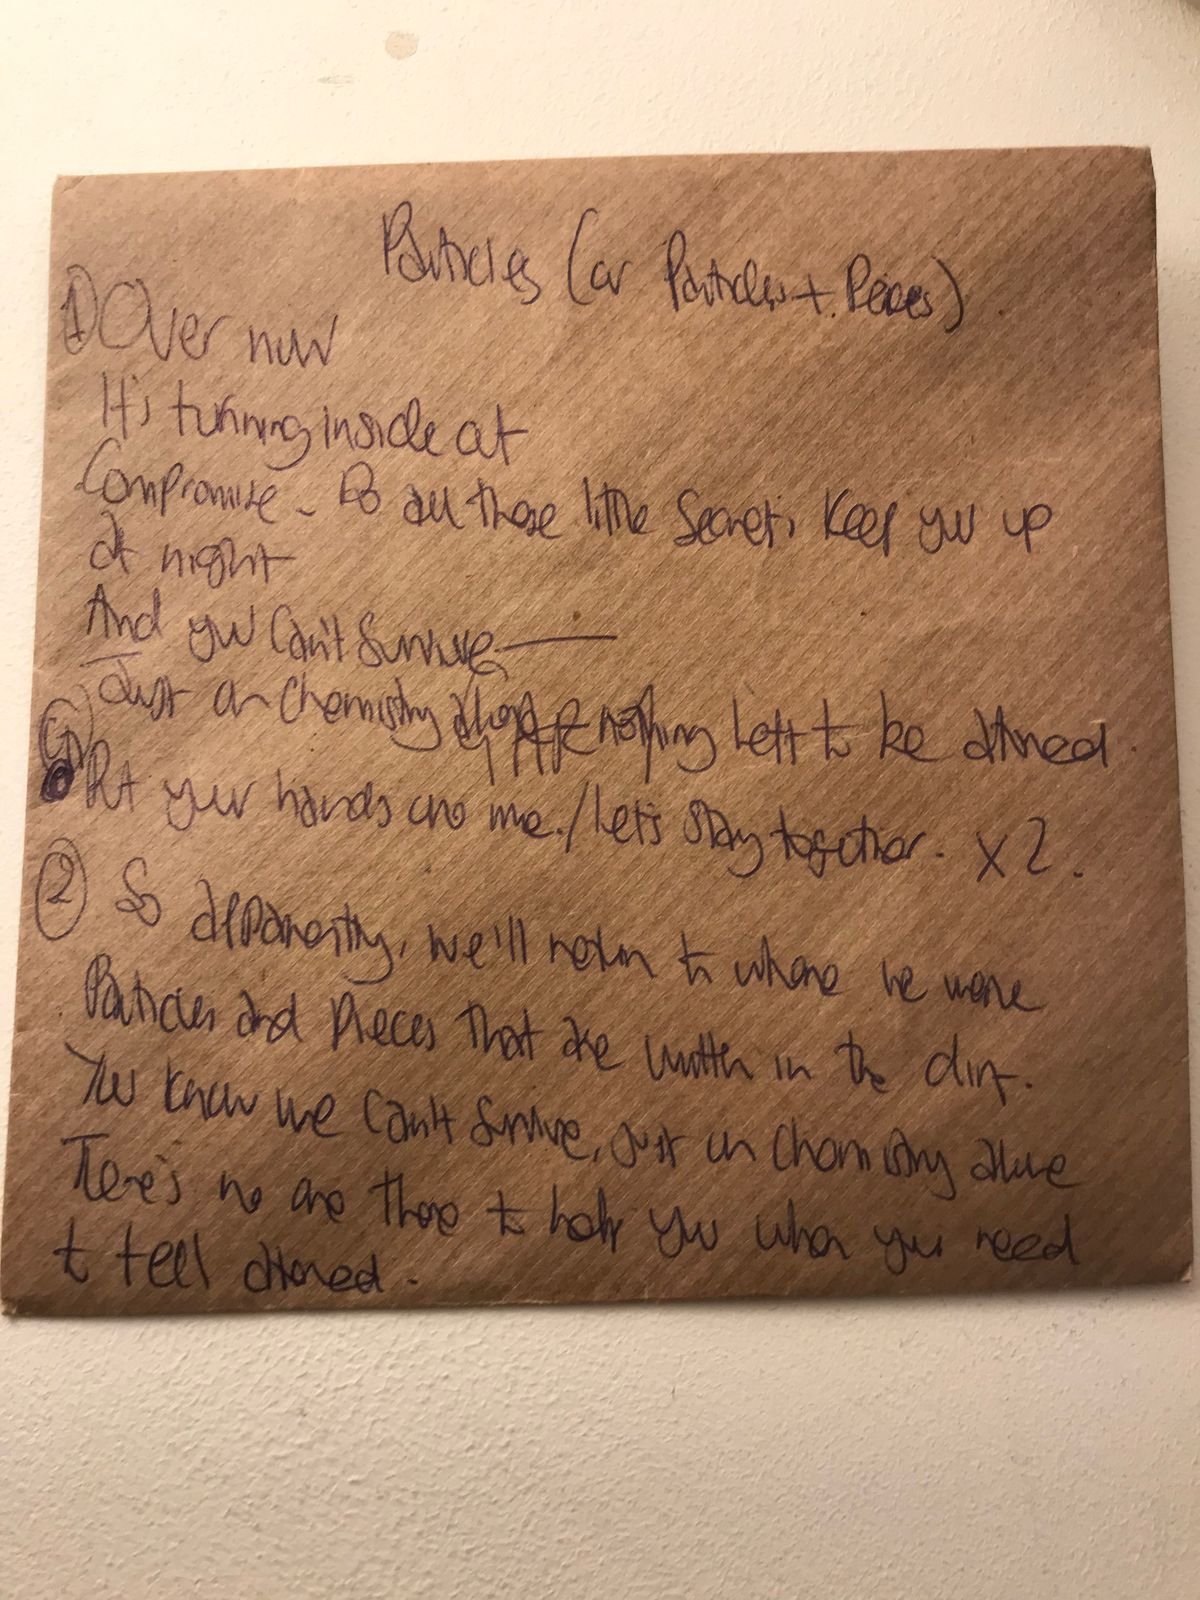 Particles (or Particles + Pieces).
① Over now
It's turning inside out
Compromise - Do all those little secrets keep you up
at night
And you can't survive
Just on chemistry alone nothing left to be atoned
Put your hands on me. / Let's stay together. x 2.
② So apparently, we'll return to where we were
Particles and pieces that are written in the dirt.
You know we can't survive, just on chemistry alone
There's no one there to help you when you need
to feel atoned.